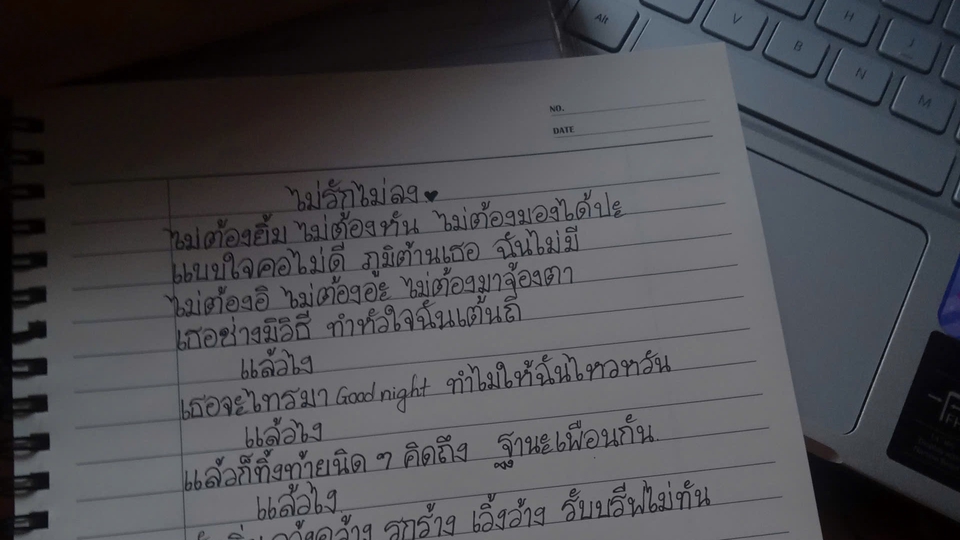 Alt
V
B
H
N
J
M
NO.
DATE
ไม่รักไม่ลง♥
ไม่ต้องยิ้ม ไม่ต้องหัน ไม่ต้องมองได้ปะ
แบบใจคอไม่ดี ภูมิต้านเธอ ฉันไม่มี
ไม่ต้องอิ ไม่ต้องอะ ไม่ต้องมาจ้องตา
เธอช่างมีวิธี ทำหัวใจฉันเต้นถี่
แล้วไง
เธอจะโทรมา Good night ทำไมให้ฉันไหวหวั่น
แล้วไง
แล้วก็ทิ้งท้ายนิด ๆ คิดถึง ฐานะเพื่อนกัน
แล้วไง
รกร้าง เวิ้งว้าง รับบรีฟไม่ทัน